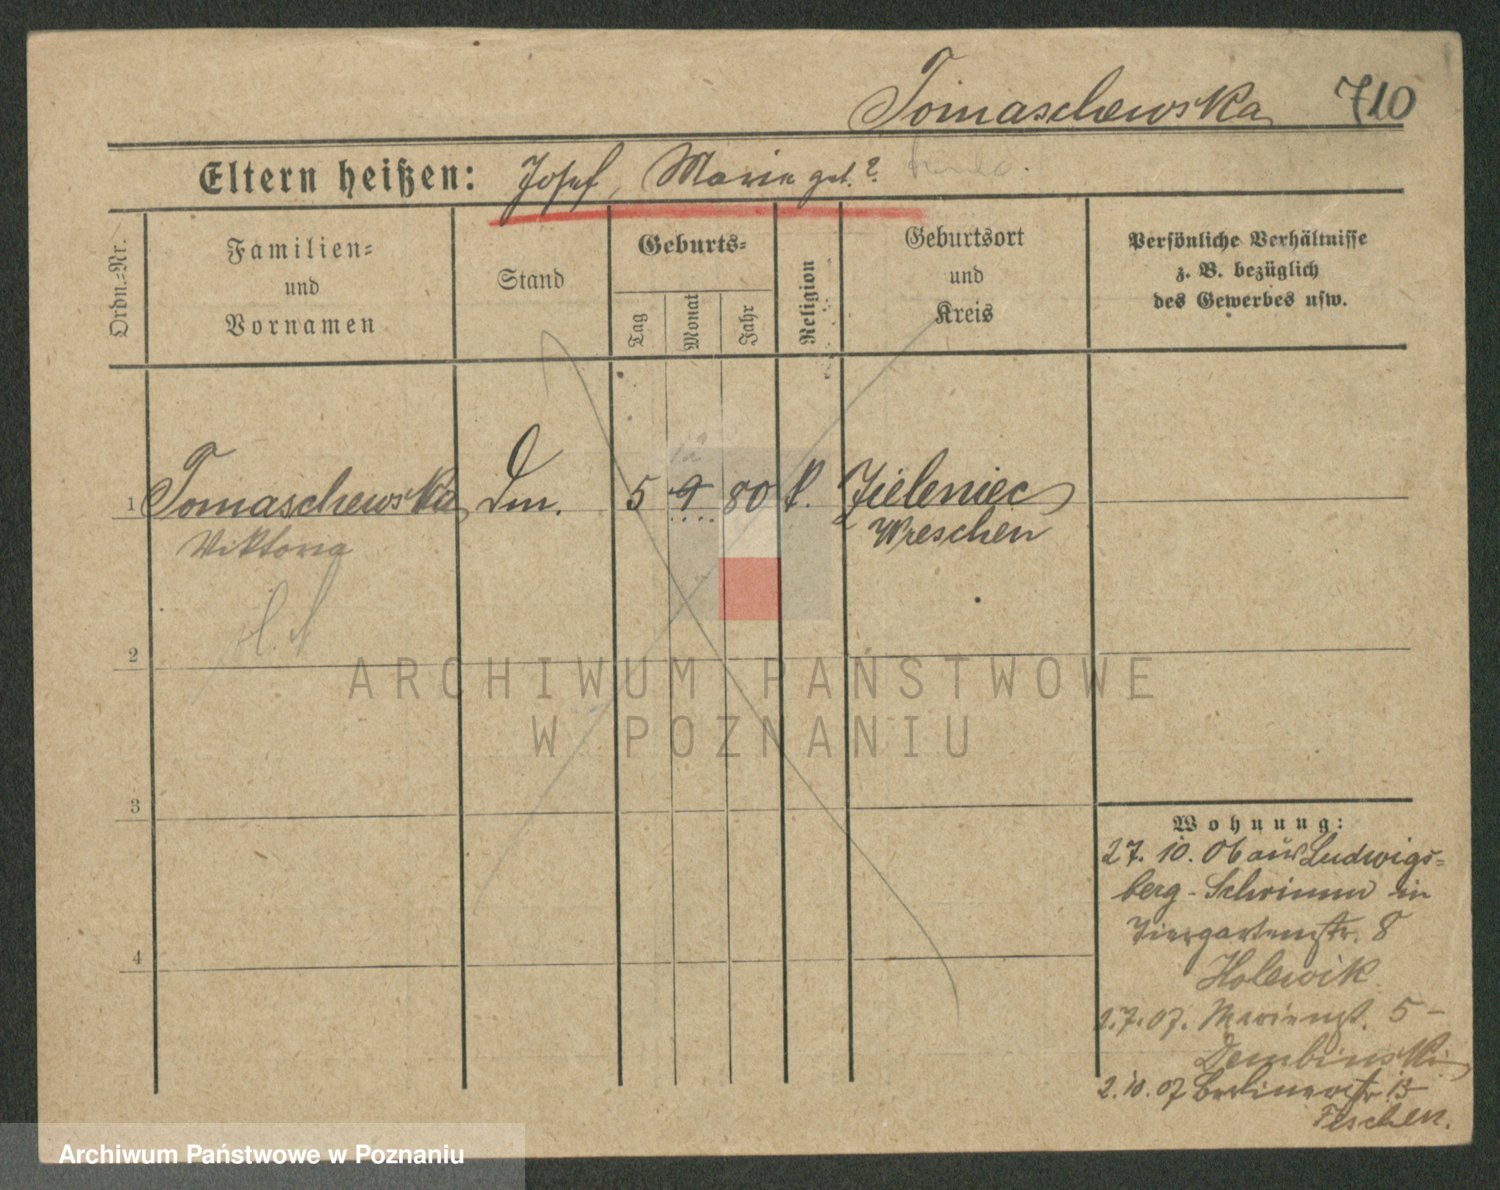 Tomaschewska 710
Eltern heißen: Josef, Marie geb. ?
Ordn.-Nr.
Familien-
und
Vornamen
Stand
Geburts-
Tag
Monat
Jahr
Religion
Geburtsort
und
Kreis
Persönliche Verhältnisse
z. B. bezüglich
des Gewerbes usw.
12
1 Tomaschewska Dm. 5 9 80 k. Zieleniec
Viktoria Wreschen
2
ARCHIWUM PAŃSTWOWE
W POZNANIU
3
Wohnung:
27. 10. 06 aus Ludwigs-
berg - Schrimm in
Tiergartenstr. 8
Holewik
1.7.07. Marienst. 5 -
Dembinski
4
2.10.07 Berlinerstr 13
Feschen.
Archiwum Państwowe w Poznaniu